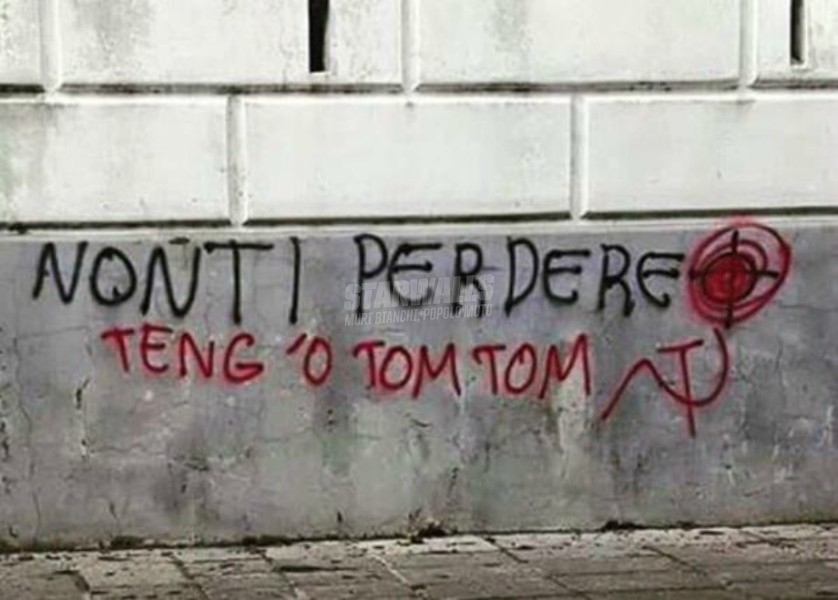 NON TI PERDERE
TENG 'O TOM TOM
STARWALLS
MURI BIANCHI, POPOLO MUTO